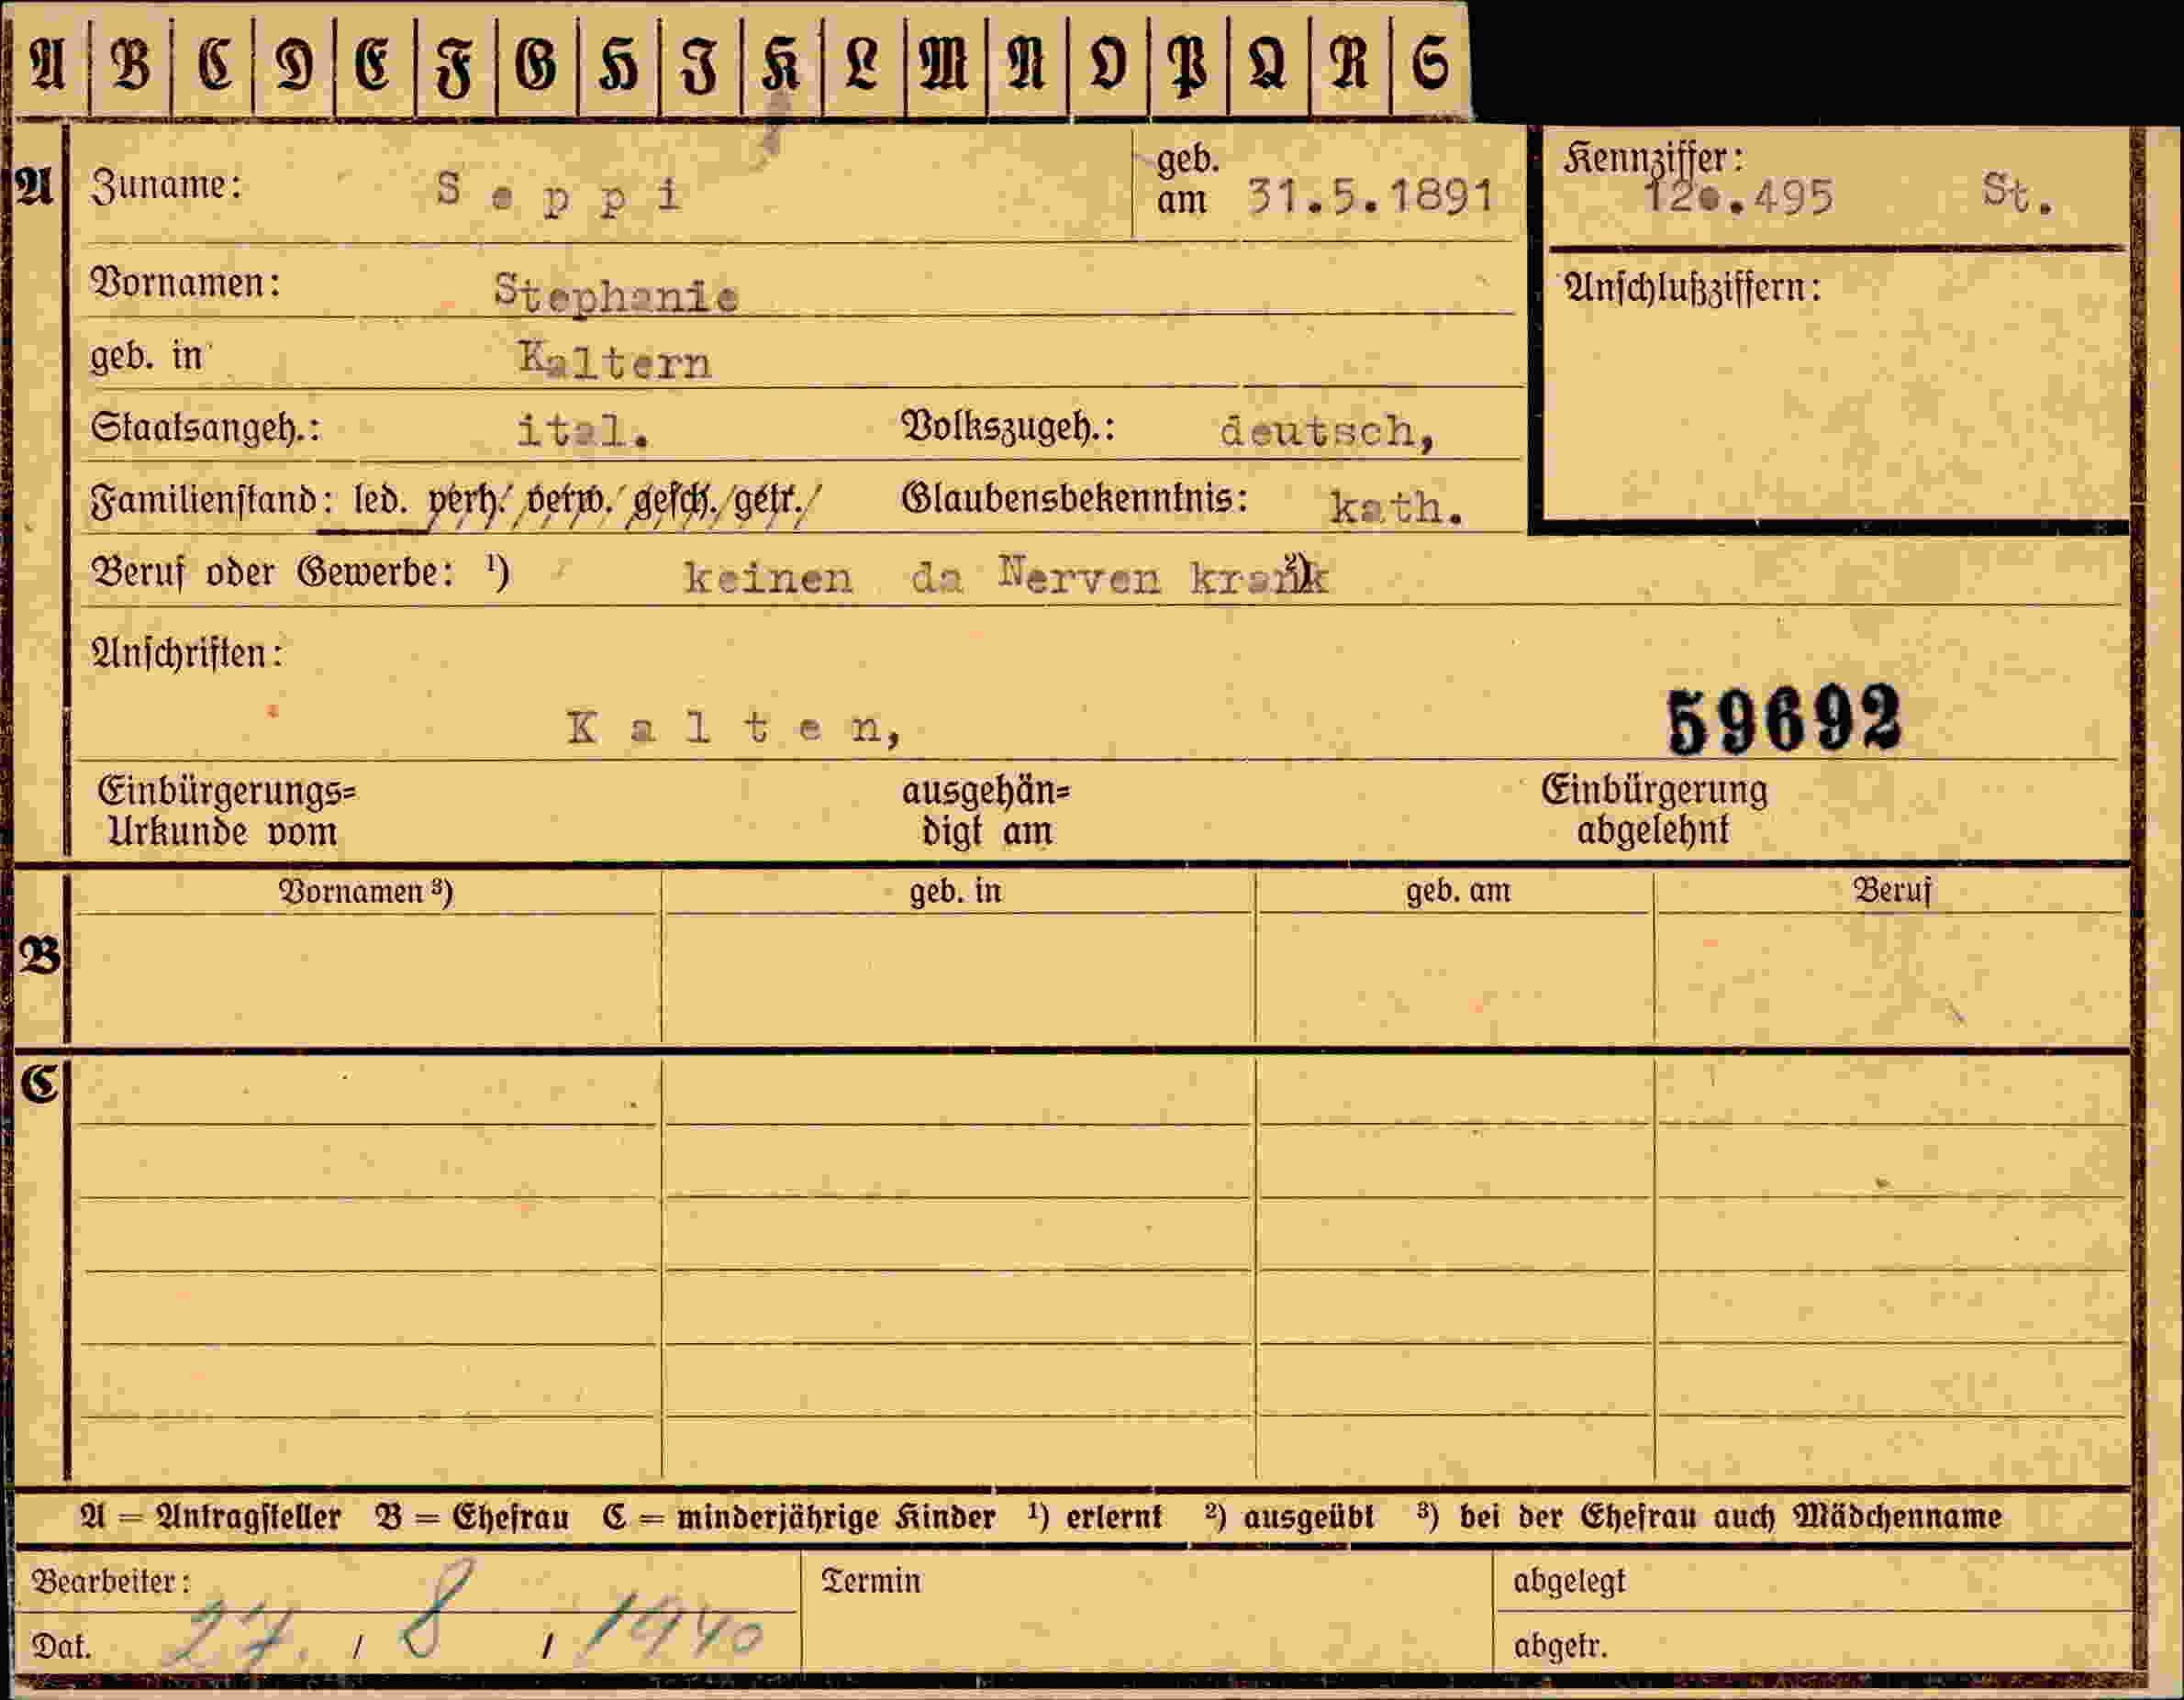 A B C D E F G H I K L M N O P Q R S
A Zuname: Seppi geb. am 31.5.1891 Kennziffer: 12o.495 St.
Vornamen: Stephanie Anschlußziffern:
geb. in Kaltern
Staatsangeh.: ital. Volkszugeh.: deutsch,
Familienstand: led. verh. verw. gesch. getr. Glaubensbekenntnis: kath.
Beruf oder Gewerbe: ¹) keinen da Nerven krank ²)
Anschriften:
Kalten, 59692
Einbürgerungs= ausgehän= Einbürgerung
Urkunde vom digt am abgelehnt
Vornamen ³) geb. in geb. am Beruf
B
C
A = Antragsteller B = Ehefrau C = minderjährige Kinder ¹) erlernt ²) ausgeübt ³) bei der Ehefrau auch Mädchenname
Bearbeiter: Termin abgelegt
Dat. 27. / 8 / 1940 abgetr.